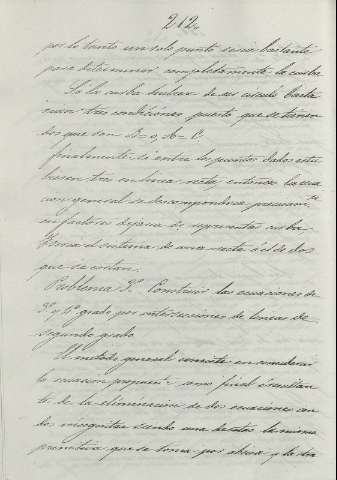 212.
por lo tanto un solo punto seria bastante
para determinar completamente la curba
Si la curba hubiera de ser circulo basta
rian tres condiciones puesto que se tienen
dos que son B=0, A=C.
finalmente si entre los puntos dados estu
biesen tres en linea recta entonces la ecua
cion general se descompondria
en factores dejaria de representar curba
sistema de una recta ó el de dos
que se cortan.
Problema 3º. Construir las ecuaciones de
3º y 4º grado por intersecciones de lineas de
segundo grado
El metodo general consiste en considerar
la ecuacion como final ó resultan
te de la eliminacion de dos ecuaciones con
dos incognitas siendo una de estas la misma
primitiva que se toma por abcisa y la otra